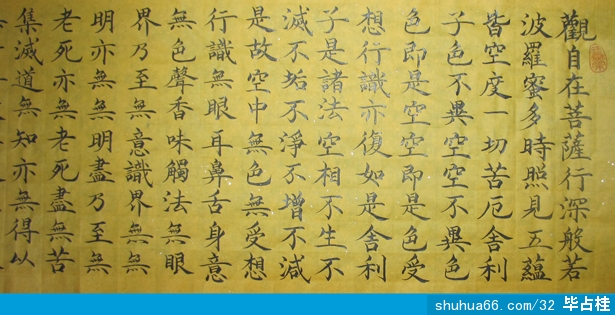 觀自在菩薩行深般若
波羅蜜多時照見五蘊
皆空度一切苦厄舍利
子色不異空空不異色
色即是空空即是色受
想行識亦復如是舍利
子是諸法空相不生不
滅不垢不淨不增不減
是故空中無色無受想
行識無眼耳鼻舌身意
無色聲香味觸法無眼
界乃至無意識界無無
明亦無無明盡乃至無
老死亦無老死盡無苦
集滅道無知亦無得以
shuhua66.com/32 毕占桂